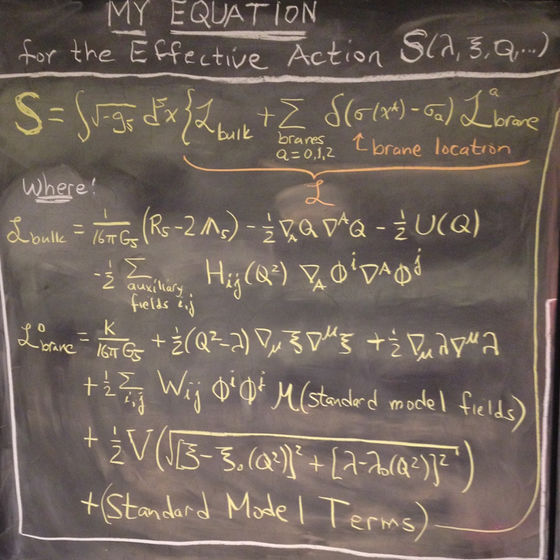 MY EQUATION
for the Effective Action S(λ, ξ, Q, ...)
S = ∫√-g₅ d⁵x {ℒ_bulk + Σ_{branes a=0,1,2} δ(σ(x^A) - σ_a) ℒ^a_brane
↑ brane location
ℒ
Where!
ℒ_bulk = 1/16πG₅ (R₅ - 2Λ₅) - ½ ∇_A Q ∇^A Q - ½ U(Q)
-½ Σ_{auxiliary fields i,j} H_ij(Q²) ∇_A Φ^i ∇^A Φ^j
ℒ⁰_brane = K/16πG₅ + ½(Q²-λ) ∇_μ ξ ∇^μ ξ + ½ ∇_μ λ ∇^μ λ
+ ½ Σ_{i,j} W_ij Φ^i Φ^i M(standard model fields)
+ ½ V(√([ξ-ξ₀(Q²)]² + [λ-λ₀(Q²)]²))
+ (Standard Model Terms)